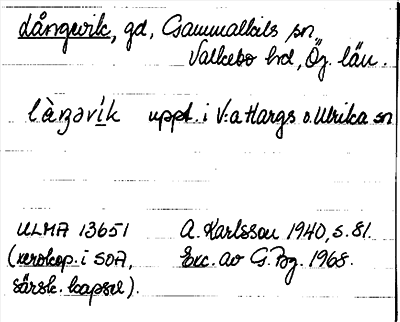 Långevik, gd, Gammalkils sn
Valkebo hd, Ög. län.
làŋəvìk uppt. i V:a Hargs o. Ulrika sn
ULMA 13651 A. Karlsson 1940, s. 81.
(xerokop. i SOA, Exc. av G. Bg. 1968.
särsk. kapsel).